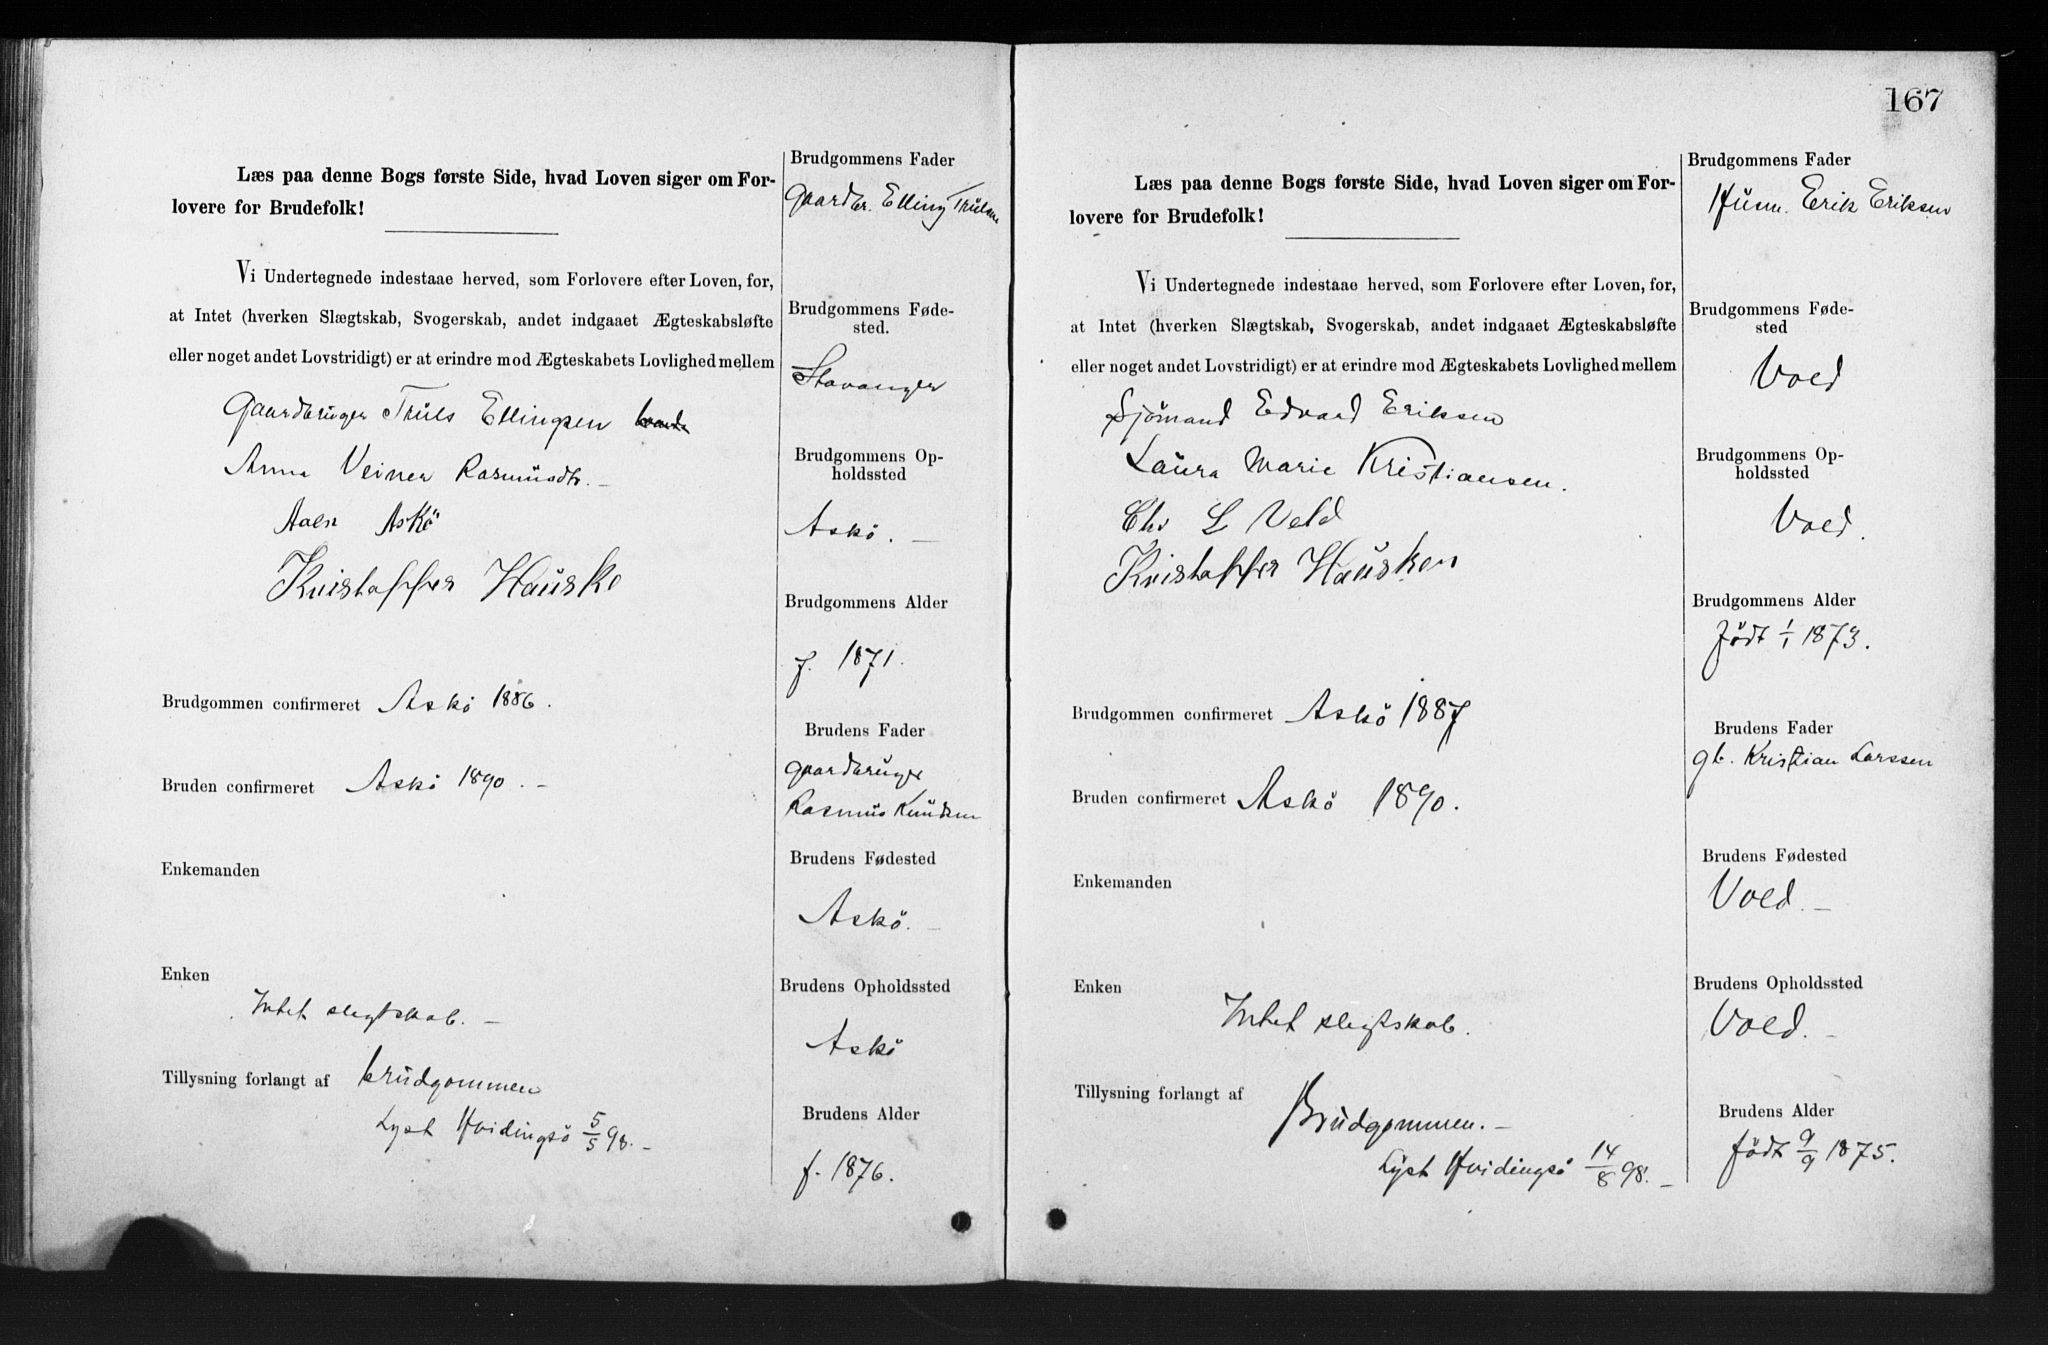 Læs paa denne Bogs første Side, hvad Loven siger om For-
lovere for Brudefolk!
Vi Undertegnede indestaae herved, som Forlovere efter Loven, for,
at Intet (hverken Slægtskab, Svogerskab, andet indgaaet Ægteskabsløfte
eller noget andet Lovstridigt) er at erindre mod Ægteskabets Lovlighed mellem
Gaardbruger Truls Ellingsen
Anna Veiner Rasmusdtr. —
Askö
Kristoffer Hauske
Brudgommen confirmeret Askö 1886.
Bruden confirmeret Askö 1890. —
Enkemanden
Enken
Intet slegtskab. —
Tillysning forlangt af brudgommen
Lyst Hvidingsö 5/5 98. —
Brudgommens Fader
Gaardbr. Elling Trulsen
Brudgommens Føde-
sted.
Stavanger
Brudgommens Op-
holdssted
Askö. —
Brudgommens Alder
f. 1871.
Brudens Fader
Gaardbruger
Rasmus Knudsen
Brudens Fødested
Askö. —
Brudens Opholdssted
Askö
Brudens Alder
f. 1876.
167
Læs paa denne Bogs første Side, hvad Loven siger om For-
lovere for Brudefolk!
Vi Undertegnede indestaae herved, som Forlovere efter Loven, for,
at Intet (hverken Slægtskab, Svogerskab, andet indgaaet Ægteskabsløfte
eller noget andet Lovstridigt) er at erindre mod Ægteskabets Lovlighed mellem
Sjömand Edvard Eriksen
Laura Marie Kristiansen.
Chr L Vold
Kristoffer Hausken
Brudgommen confirmeret Askö 1887
Bruden confirmeret Askö 1890.
Enkemanden
Enken
Intet slegtskab.
Tillysning forlangt af Brudgommen. —
Lyst Hvidingsö 14/8 98. —
Brudgommens Fader
Husm. Erik Eriksen
Brudgommens Føde-
sted
Vold
Brudgommens Op-
holdssted
Vold.
Brudgommens Alder
Födt 1/1 1873.
Brudens Fader
gb. Kristian Larssen
Brudens Fødested
Vold. —
Brudens Opholdssted
Vold. —
Brudens Alder
födt 9/9 1875.